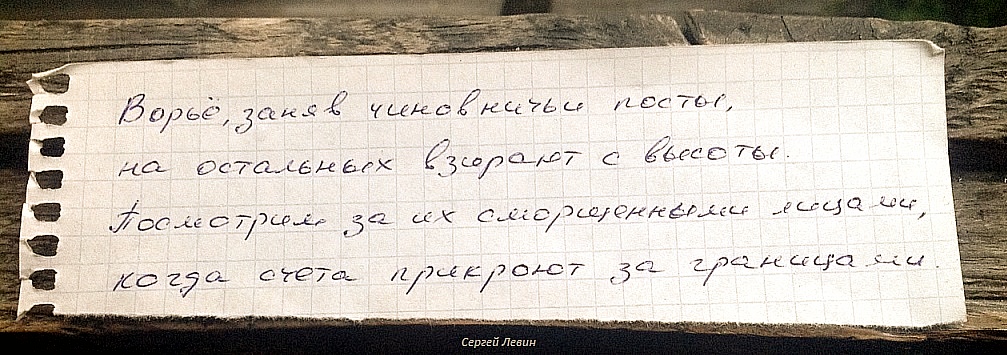 Ворьё, заняв чиновничьи посты,
на остальных взирают с высоты.
Посмотрим за их сморщенными лицами,
когда счета прикроют за границами.
Сергей Левин